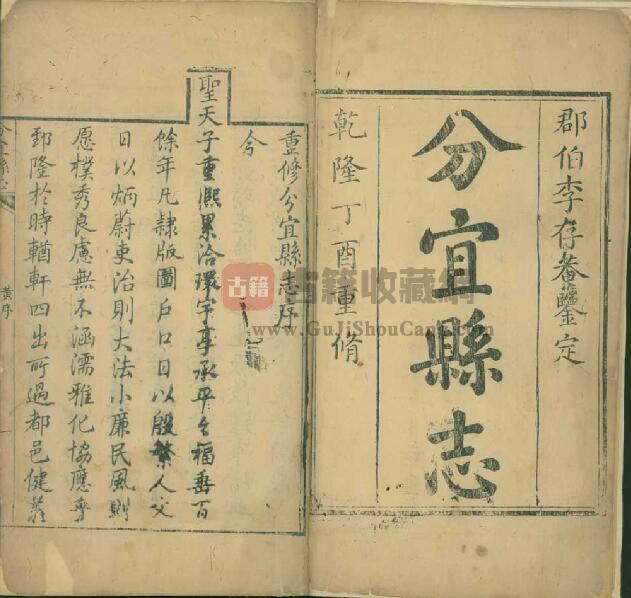 郡伯李存菴鑒定
分宜縣志
乾隆丁酉重脩
重修分宜縣志序
今
聖天子重熙累洽環宇享承平之福垂百
餘年凡隸版圖戶口日以殷繁人文
日以炳蔚吏治則大法小廉民風則
愿樸秀良慮無不涵濡雅化協應乎
郅隆於時輶軒四出所過都邑健羨
分宜縣志
黃序
一
古籍
古籍收藏網
www.GuJiShouCang.com